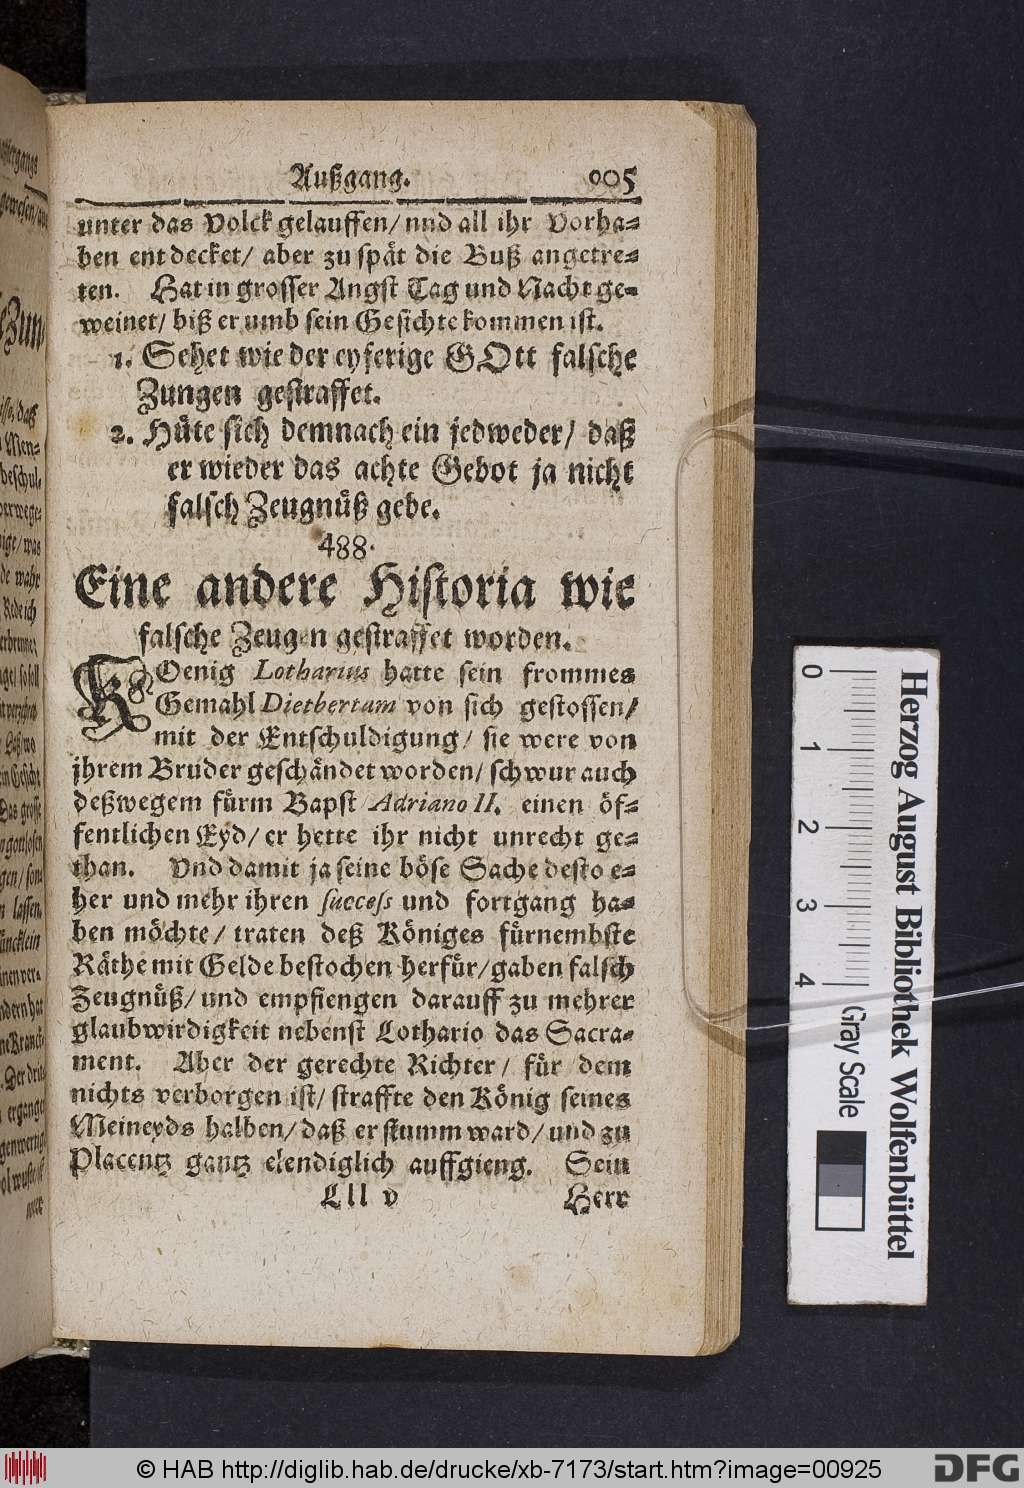 Außgang. 905
unter das Volck gelauffen/ und all ihr Vorha-
ben entdecket/ aber zu spät die Buß angetre-
ten. Hat in grosser Angst Tag und Nacht ge-
weinet/ biß er umb sein Gesichte kommen ist.
1. Sehet wie der eyferige GOtt falsche
Zungen gestraffet.
2. Hüte sich demnach ein jedweder/ daß
er wieder das achte Gebot ja nicht
falsch Zeugnüß gebe.
488.
Eine andere Historia wie
falsche Zeugen gestraffet worden.
KOenig Lotharius hatte sein frommes
Gemahl Dietbertam von sich gestossen/
mit der Entschuldigung/ sie were von
jhrem Bruder geschändet worden/ schwur auch
deßwegem fürm Bapst Adriano II. einen öf-
fentlichen Eyd/ er hette ihr nicht unrecht ge-
than. Vnd damit ja seine böse Sache desto e-
her und mehr ihren success und fortgang ha-
ben möchte/ traten deß Königes fürnembste
Räthe mit Gelde bestochen herfür/ gaben falsch
Zeugnüß/ und empfiengen darauff zu mehrer
glaubwirdigkeit nebenst Lothario das Sacra-
ment. Aber der gerechte Richter/ für dem
nichts verborgen ist/ straffte den König seines
Meineyds halben/ daß er stumm ward/ und zu
Placentz gantz elendiglich auffgieng. Sein
Lll v Herr
0 1 2 3 4
Gray Scale
Herzog August Bibliothek Wolfenbüttel
© HAB http://diglib.hab.de/drucke/xb-7173/start.htm?image=00925
DFG